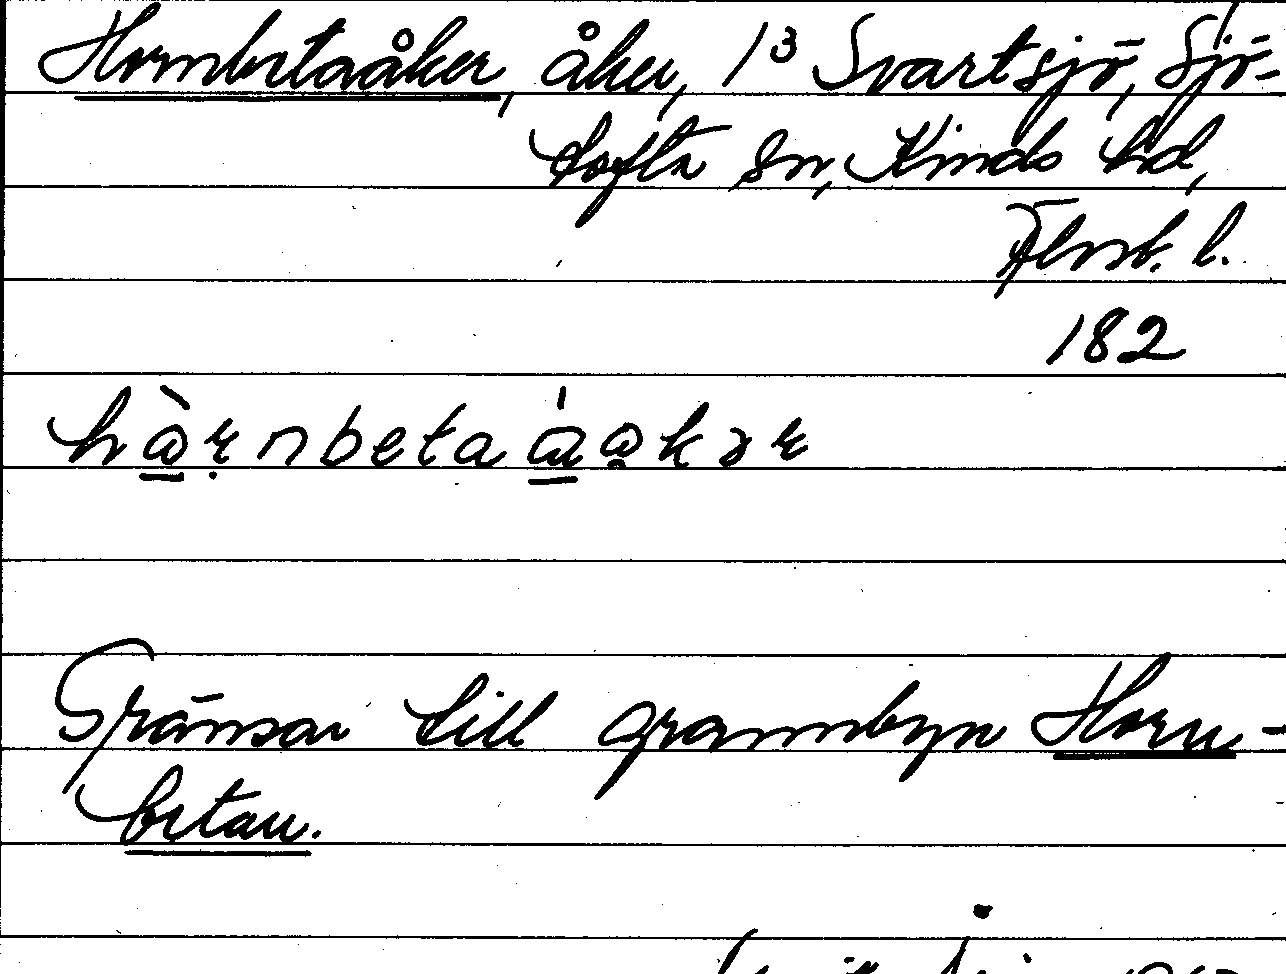 Hornbetaåker, åker, 1³ Svartsjö, Sjö-
tofta sn, Kinds hd,
Älvsb. l.
182
Gränsar till grannbyn Horn-
betan.